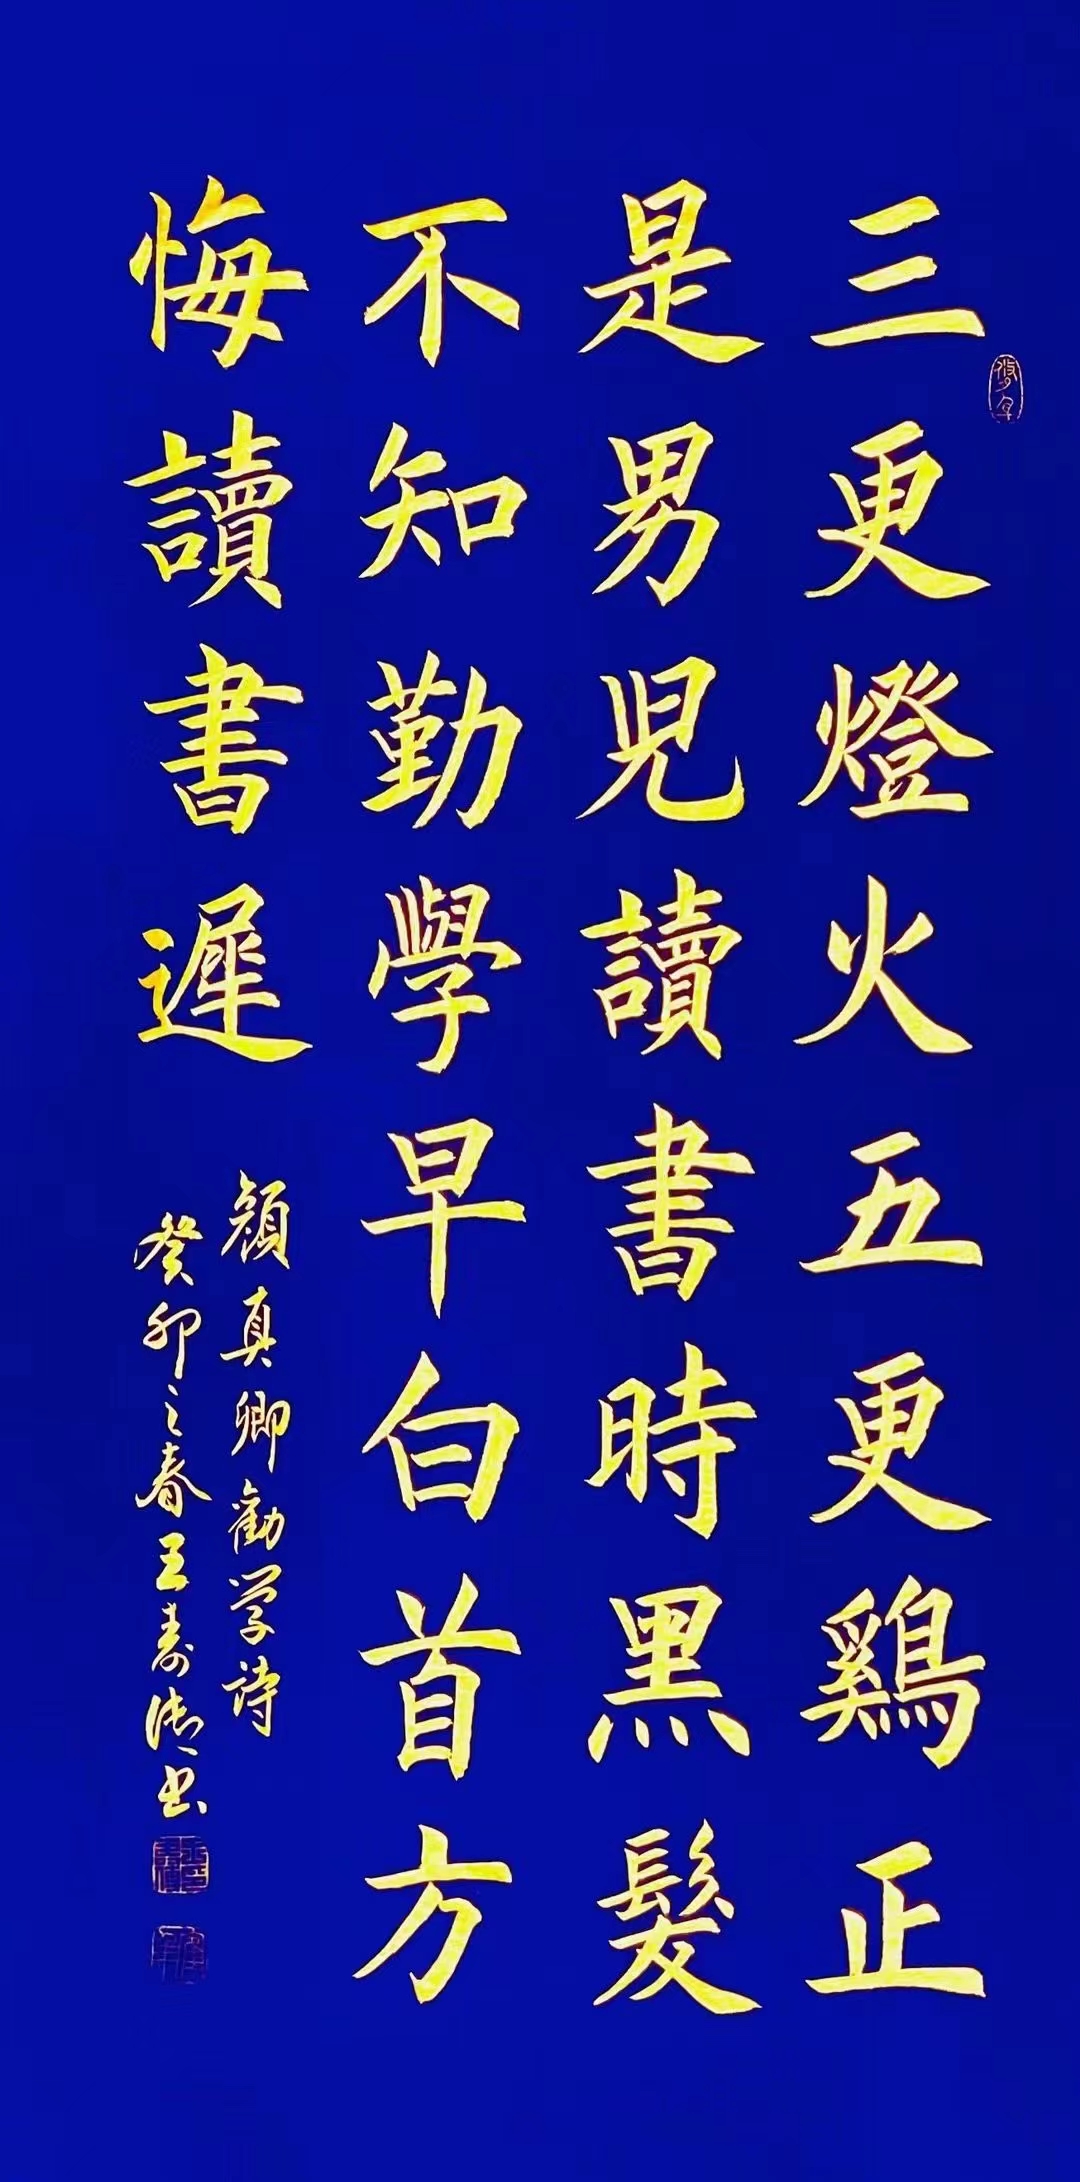 三更燈火五更鷄正
是男児讀書時黑髮
不知勤學早白首方
悔讀書遲
顏真卿勸学詩
癸卯之春王壽 书